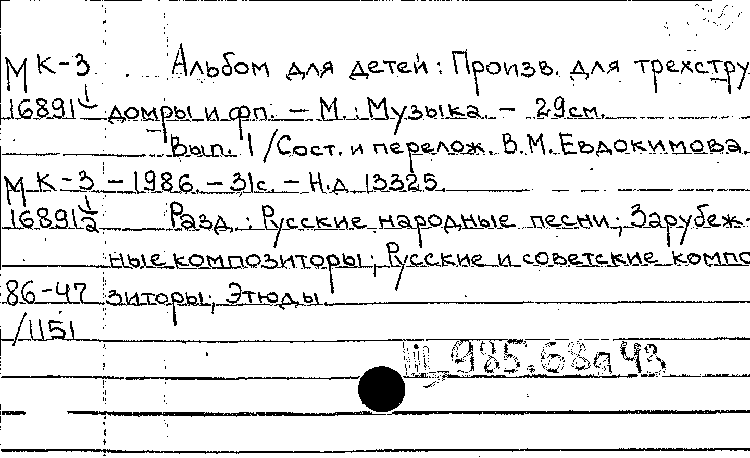 МК-3 Альбом для детей: Произв. для трехстру
16891 1/ домры и фп. – М.: Музыка. – 29см.
Вып. 1 / Сост. и перелож. В.М. Евдокимова.
МК-3 – 1986. – 31с. – Н.д. 13325.
16891 1/2 Разд.: Русские народные песни; Зарубеж-
ные композиторы; Русские и советские компо
86-47 зиторы; Этюды.
/1151
985.68я43